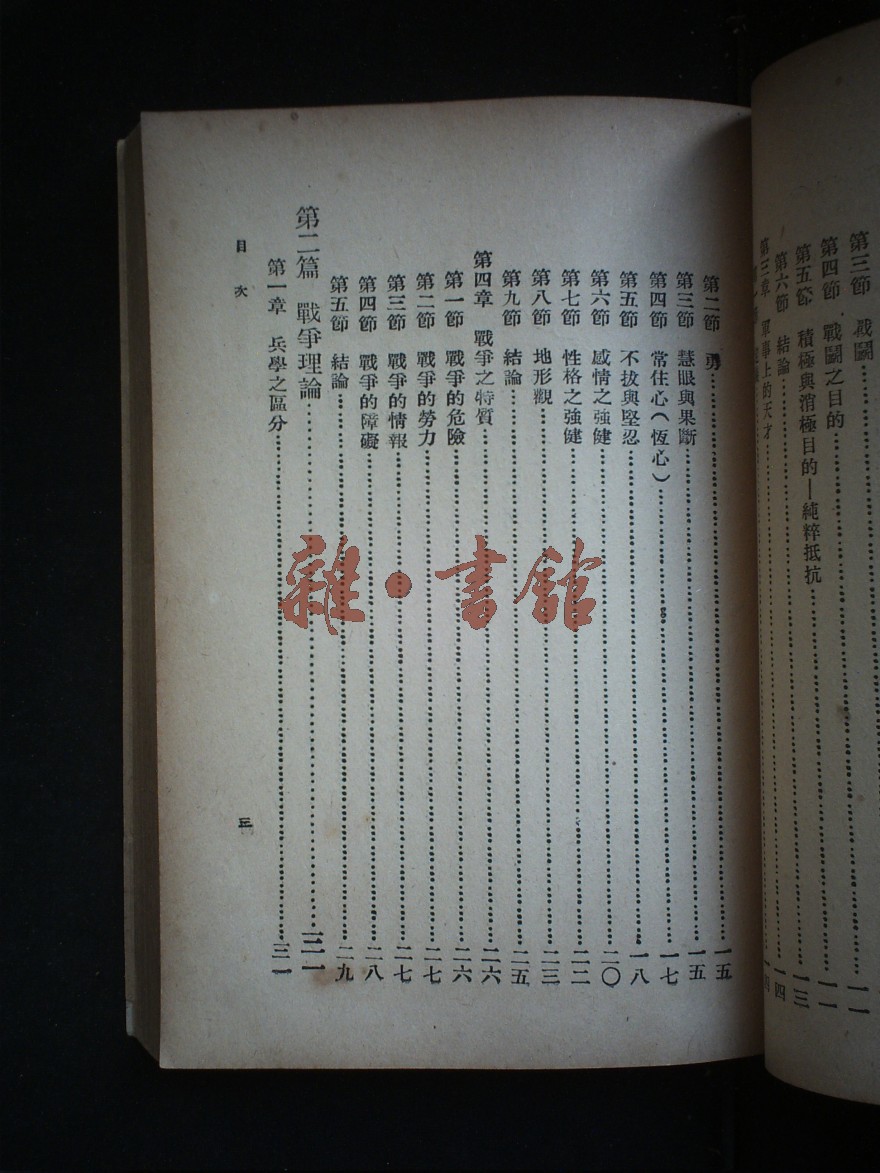 第三節 戰鬭……一一
第四節 戰鬭之目的……一一
第五節 積極與消極目的—純粹抵抗……一三
第六節 結論……一四
第三章 軍事上的天才……一四
第二節 勇……一五
第三節 慧眼與果斷……一五
第四節 常住心(恆心)……一七
第五節 不拔與堅忍……一八
第六節 感情之強健……二〇
第七節 性格之強健……二二
第八節 地形觀……二三
第九節 結論……二五
第四章 戰爭之特質……二六
第一節 戰爭的危險……二六
第二節 戰爭的勞力……二七
第三節 戰爭的情報……二七
第四節 戰爭的障礙……二八
第五節 結論……二九
第二篇 戰爭理論……三一
第一章 兵學之區分……三一
目次
三
雜·書館